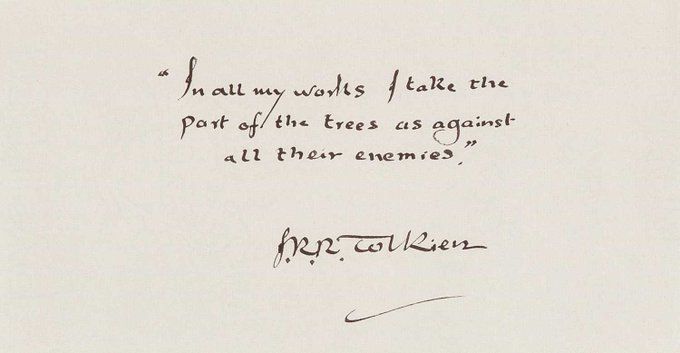 “In all my works I take the
part of the trees as against
all their enemies.”
J.R.R. Tolkien